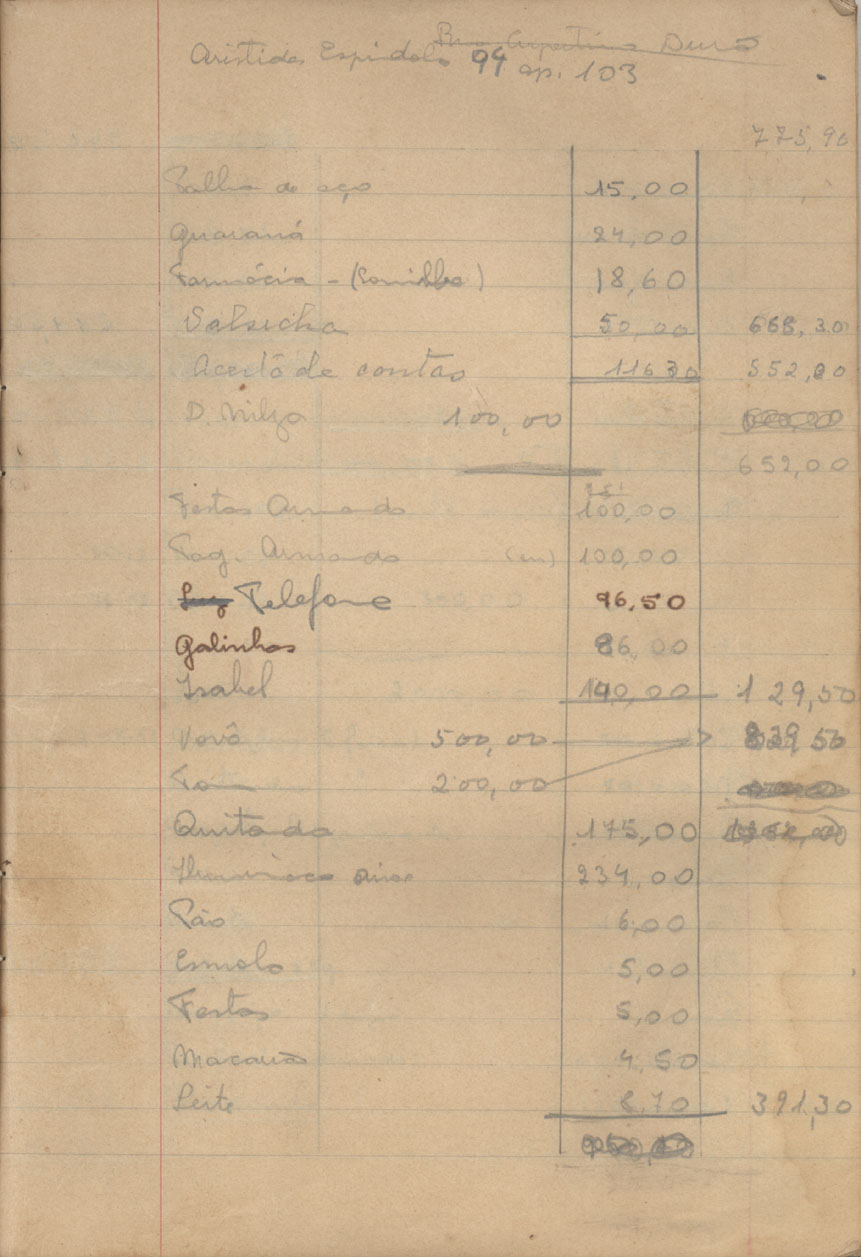 Aristides Espindola 94 ap. 103
775,90
Palha de aço 15,00
Guaraná 24,00
Farmácia - 18,60
Salsicha 50,00 668,30
Acertô de contas 116 30 552,00
D. Nilza 100,00
652,00
Festas Armando 100,00
Pag. Armando 100,00
Luz Telefone 96,50
Galinhas 86,00
Isabel 140,00 129,50
Vovô 500,00 829,50
200,00
Quitanda 175,00
234,00
Pão 6,00
Esmola 5,00
Festas 5,00
Macarrão 4,50
Leite 8,70 391,30